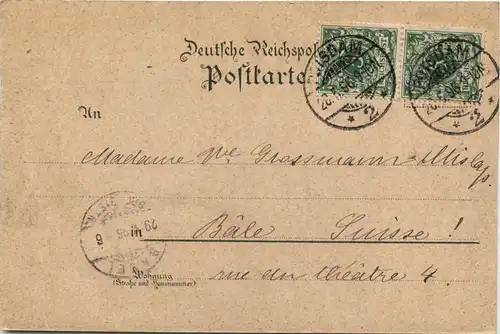 Deutsche Reichspost
Postkarte
An
Madame Vve Grossmann-
in Bâle Suisse!
Wohnung
(Straße und Hausnummer)
rue du théâtre 4.